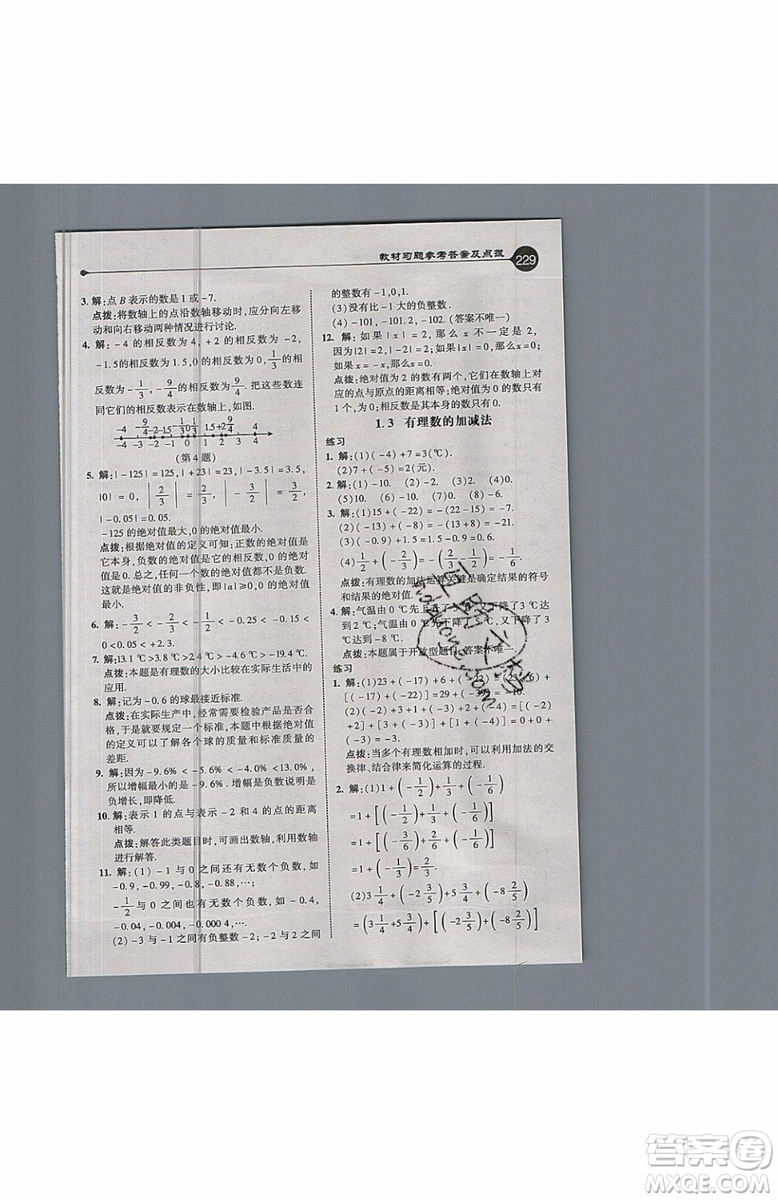 教材习题参考答案及点拨 229
3. 解:点 B 表示的数是 1 或 -7.
点拨:将数轴上的点沿数轴移动时,应分向左移
动和向右移动两种情况进行讨论.
4. 解: -4 的相反数为 4, +2 的相反数为 -2,
-1.5的相反数为 1.5,0 的相反数为 0, 1/3 的相
反数为 -1/3, -9/4 的相反数为 9/4. 把这些数连
同它们的相反数表示在数轴上,如图.
-4 -9/4 -2 -1.5 -1/3 0 1/3 1.5 +2 9/4 4
-4 -3 -2 -1 0 1 2 3 4
(第 4 题)
5. 解:|-125| =125,|+23| =23,|-3.5| =3.5,
|0| =0, |2/3| = 2/3, |-3/2| = 3/2,
|-0.05| =0.05.
-125 的绝对值最大,0 的绝对值最小.
点拨:根据绝对值的定义可知:正数的绝对值是
它本身,负数的绝对值是它的相反数,0 的绝对
值是 0. 总之,任何数的绝对值都大于或等于 0,
这体现了绝对值的非负性,即|a|≥0.
6. 解: -2/3 < -1/2 < -2/5 < -0.25 < -0.15
<0<0.05 <2.3.
7. 解:13.1 ℃ >3.8 ℃ >2.4 ℃ > -4.6 ℃ > -19.4 ℃.
点拨:本题是有理数的大小比较在实际生活中的
应用.
8. 解:记为 -0.6 的球最接近标准.
点拨:在实际生产中,经常需要检验产品是否合
格,于是就要规定一个标准,本题中可以用绝对值
的定义可以了解各个球的质量和标准质量的
差距.
9. 解:因为 -9.6% < -5.6% < -0.6% <2.8%,
所以增幅最小的是 -9.6%. 增幅是负数说明是
负增长,即下降.
10. 解:表示 1 的点与表示 -2 和 4 的点的距离
相等.
点拨:解答此类题目时,可画出数轴,利用数轴
进行解答.
11. 解:(1) -1 与 0 之间还有无数个负数,如
-0.9, -0.91, -0.8, -0.88,…;
-1/2 与 0 之间也有无数个负数,如 -0.4,
-0.04, -0.004, -0.000 4,….
(2) -3 与 -1 之间有负整数 -2; -2 与 2 之间
的整数有 -1,0,1.
(3)没有比 -1 大的负整数.
(4) -101, -101.2, -102. (答案不唯一)
12. 解:如果 |x| =2,那么 x 不一定是 2,
因为|2| =|-2| =2;如果|x| =0,那么 x =0;
如果 x = -x,那么 x =0.
点拨:绝对值为 2 的数有两个,它们在数轴上对
应的点与原点的距离相等;绝对值为 0 的数只有
1 个,为 0;相反数是其本身的数也只有 0.
1.3 有理数的加减法
练习
1. 解:(1)( -4) +7 =3(℃).
(2)7 +( -5) =2(元).
2. 解:(1) -10. (2) -2. (3)2. (4)0.
(5)10. (6) -10. (7)0. (8)0.
3. 解:(1)15 +( -22) = -(22 -15) = -7.
(2)( -13) +( -8) = -(13 +8) = -21.
(3)( -0.9) +1.5 =1.5 -0.9 =0.6.
(4) 1/2 +( -2/3) = -(2/3 - 1/2) = -1/6.
点拨:有理数的加法运算关键是确定结果的符号
和结果的绝对值.
4. 解:气温由 0 ℃先上升了 下降了 3 ℃
变到 2 ℃ 下降了 5 ℃,
达到 -8 ℃.
点拨:本题属于开放型题目,答案不唯一.
练习
1. 解:(1)23 +( -17) +6 +( -22) =(23 +6) +
[( -17) +( -22)] =29 +( -39) = -10.
(2)( -2) +3 +1 +( -3) +2 +( -4) =[( -2)
+2] +[3 +( -3)] +[1 +( -4)] =0 +0 +
( -3) = -3.
点拨:当多个有理数相加时,可以利用加法的交
换律、结合律来简化运算的过程.
2. 解:(1)1 +( -1/2) + 1/3 +( -1/6)
=1 +[( -1/2) + 1/3 +( -1/6)]
=1 +[( -3/6) + 2/6 +( -1/6)]
=1 +( -1/3) = 2/3.
(2)3 1/4 +( -2 3/5) +5 3/4 +( -8 2/5)
=(3 1/4 +5 3/4) +[( -2 3/5) +( -8 2/5)]
答案圈
MXQE.COM